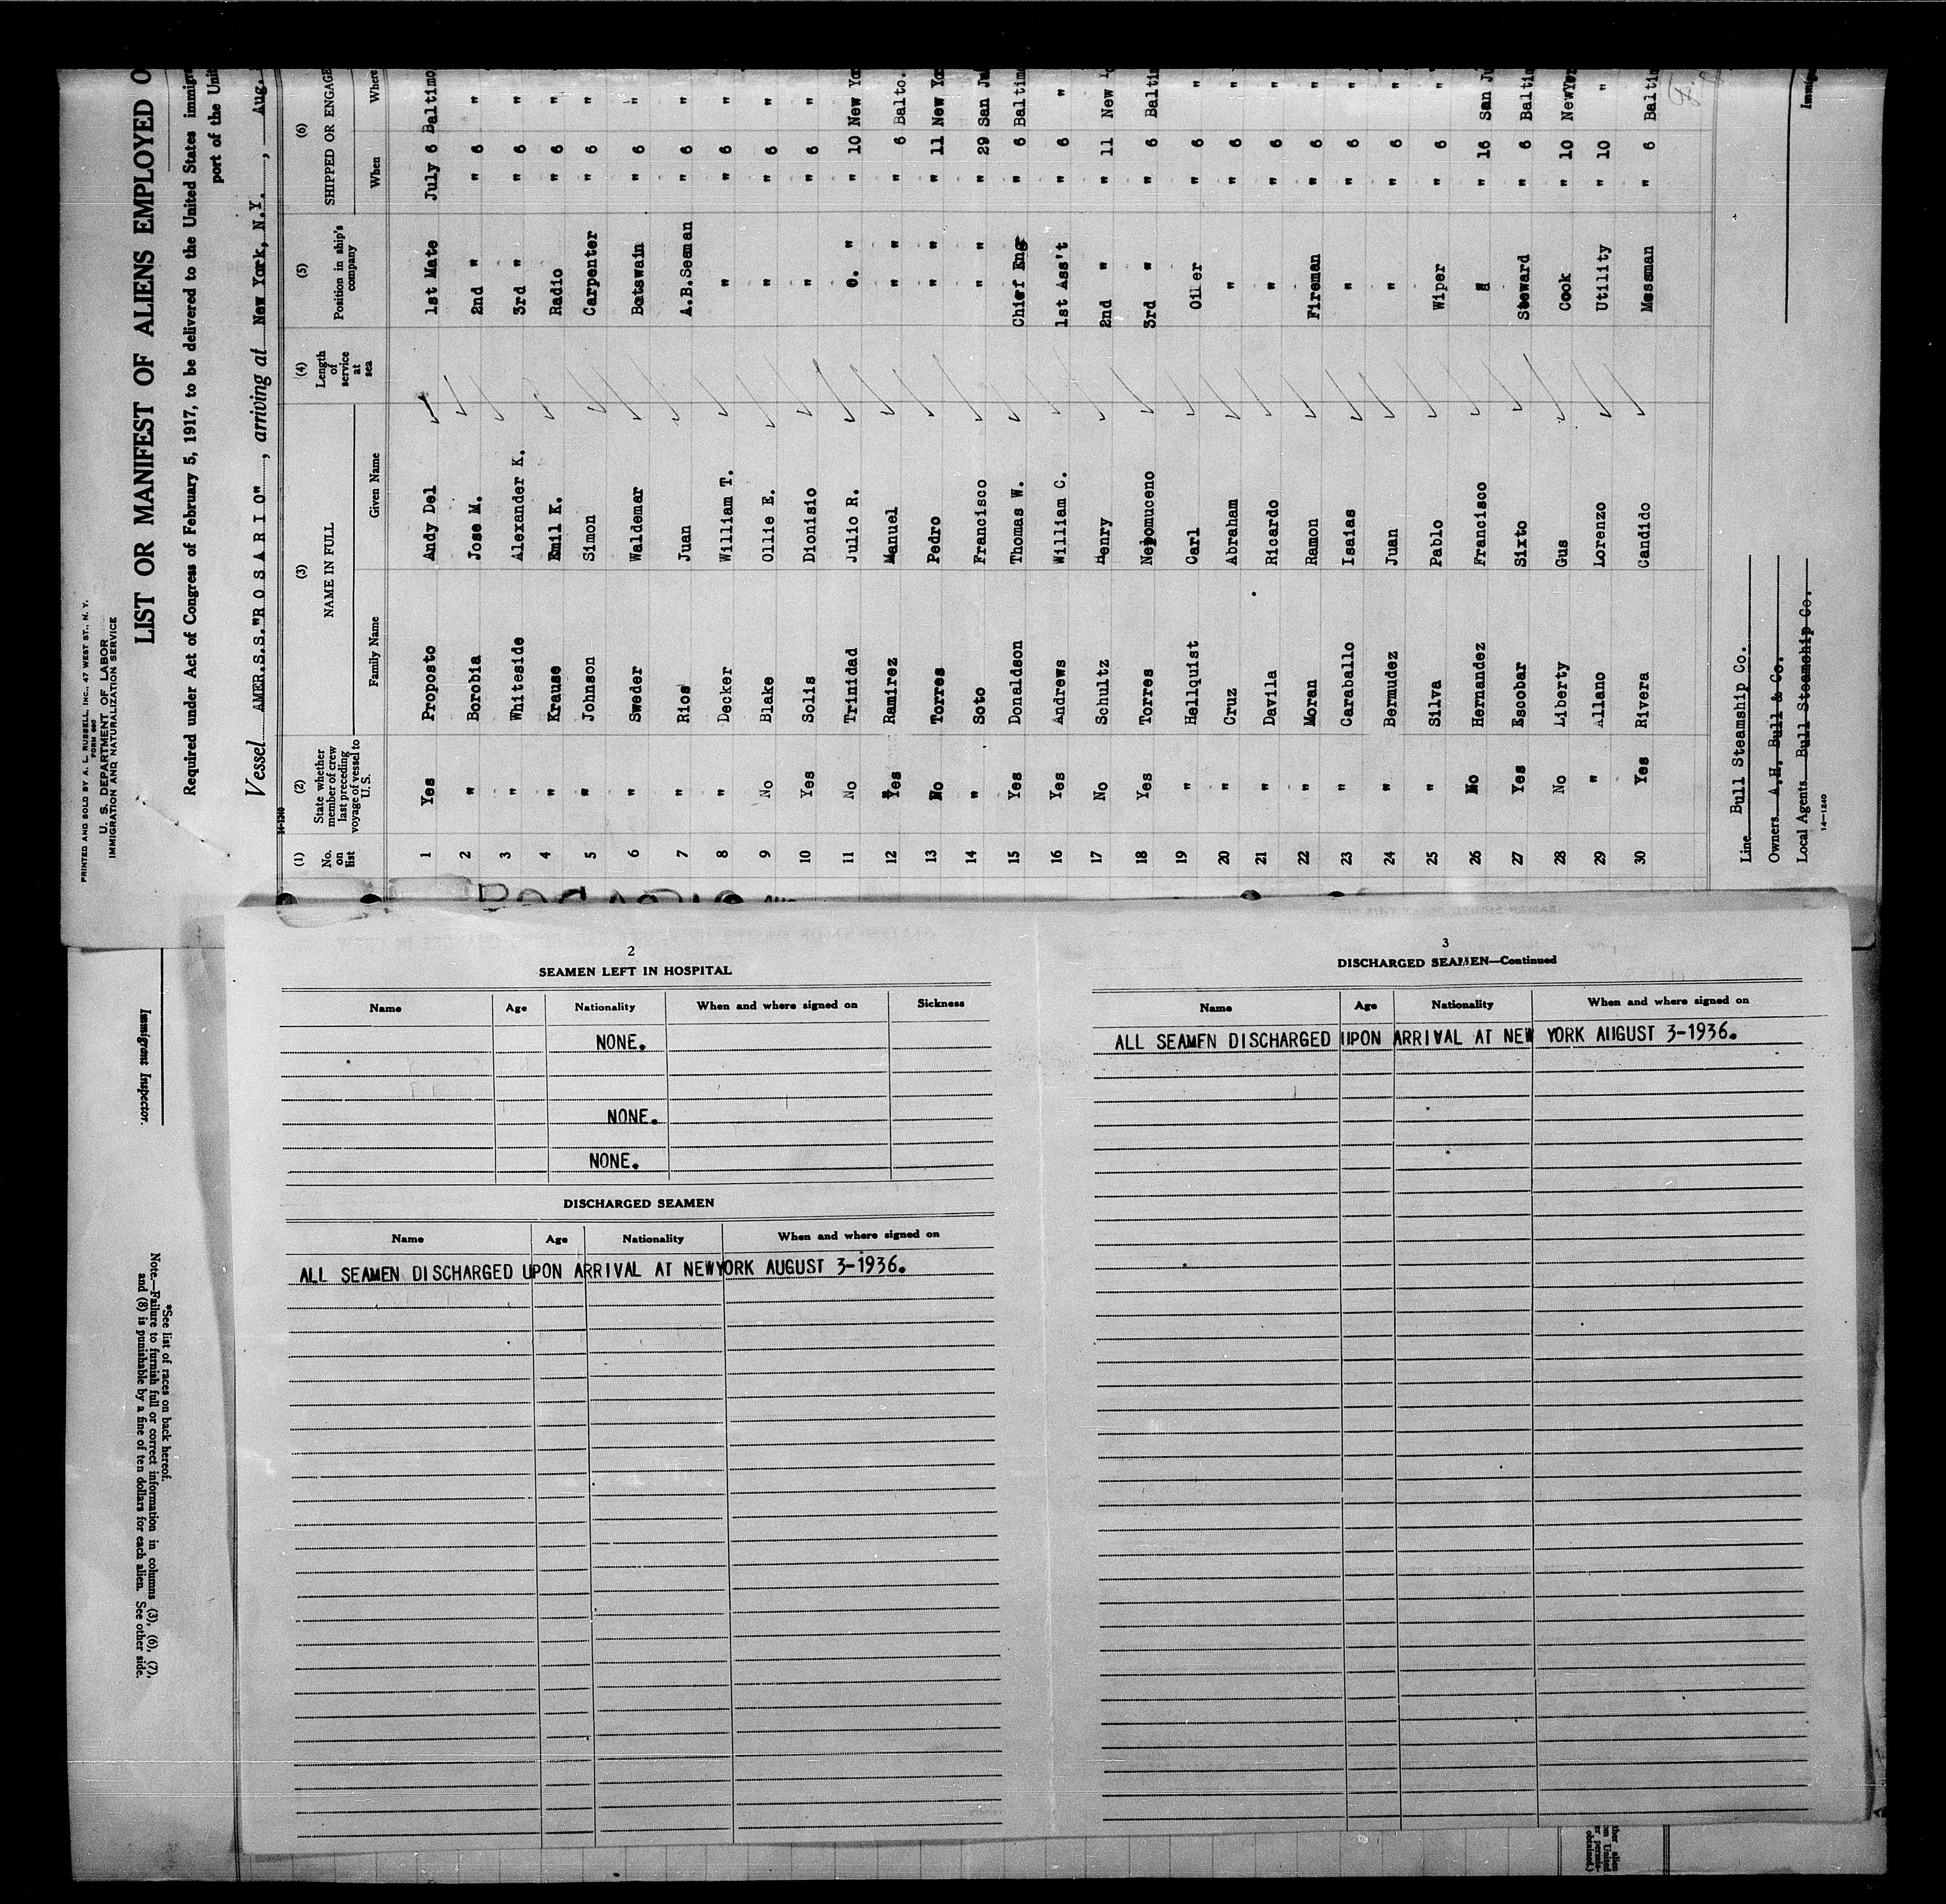 PRINTED AND SOLD BY A. L. RUSSELL, INC., 47 WEST ST., N. Y.
FORM 680
U. S. DEPARTMENT OF LABOR
IMMIGRATION AND NATURALIZATION SERVICE
LIST OR MANIFEST OF ALIENS EMPLOYED O
Required under Act of Congress of February 5, 1917, to be delivered to the United States immigra
port of the Unit
Vessel AMER.S.S."R O S A R I O", arriving at New York, N.Y., Aug.
14-1240
(1) (2) (3) (4) (5) (6)
No. on list State whether member of crew last preceding voyage of vessel to U.S. NAME IN FULL Length of service at sea Position in ship's company SHIPPED OR ENGAGE
Family Name Given Name When Where
1 Yes Proposto Andy Del 1st Mate July 6 Baltimo
2 " Borobia Jose M. 2nd " " 6 "
3 " Whiteside Alexander K. 3rd " " 6 "
4 " Krause Emil K. Radio " 6 "
5 " Johnson Simon Carpenter " 6 "
6 " Sweder Waldemar Botswain " 6 "
7 " Rios Juan A.B.Seaman " 6 "
8 " Decker William T. " " 6 "
9 No Blake Ollie E. " " 6 "
10 Yes Solis Dionisio " " 6 "
11 No Trinidad Julio R. O. " " 10 New Yo
12 Yes Ramirez Manuel " " " 6 Balto.
13 No Torres Pedro " " " 11 New Yo
14 " Soto Francisco " " " 29 San Ju
15 Yes Donaldson Thomas W. Chief Eng " 6 Baltimo
16 Yes Andrews William C. 1st Ass't " 6 "
17 No Schultz Henry 2nd " " 11 New Yo
18 Yes Torres Nepomuceno 3rd " " 6 Baltim
19 " Hellquist Carl Oiler " 6 "
20 " Cruz Abraham " " 6 "
21 " Davila Ricardo " " 6 "
22 " Moran Ramon Fireman " 6 "
23 " Caraballo Isaias " " 6 "
24 " Bermudez Juan " " 6 "
25 " Silva Pablo Wiper " 6 "
26 No Hernandez Francisco " " 16 San Ju
27 Yes Escobar Sixto Steward " 6 Baltim
28 No Liberty Gus Cook " 10 NewYor
29 " Allano Lorenzo Utility " 10 "
30 Yes Rivera Candido Messman " 6 Baltim
Line Bull Steamship Co.
Owners A.H. Bull & Co.
Local Agents Bull Steamship Co.
14-1240
Immig
Immigrant Inspector.
*See list of races on back hereof.
Note.—Failure to furnish full or correct information in columns (3), (6), (7),
and (8) is punishable by a fine of ten dollars for each alien. See other side.
2
SEAMEN LEFT IN HOSPITAL
Name Age Nationality When and where signed on Sickness
NONE.
NONE.
NONE.
DISCHARGED SEAMEN
Name Age Nationality When and where signed on
ALL SEAMEN DISCHARGED UPON ARRIVAL AT NEWYORK AUGUST 3-1936.
3
DISCHARGED SEAMEN—Continued
Name Age Nationality When and where signed on
ALL SEAMEN DISCHARGED UPON ARRIVAL AT NEW YORK AUGUST 3-1936.
ther alien
on United
er permis-
obtained.)